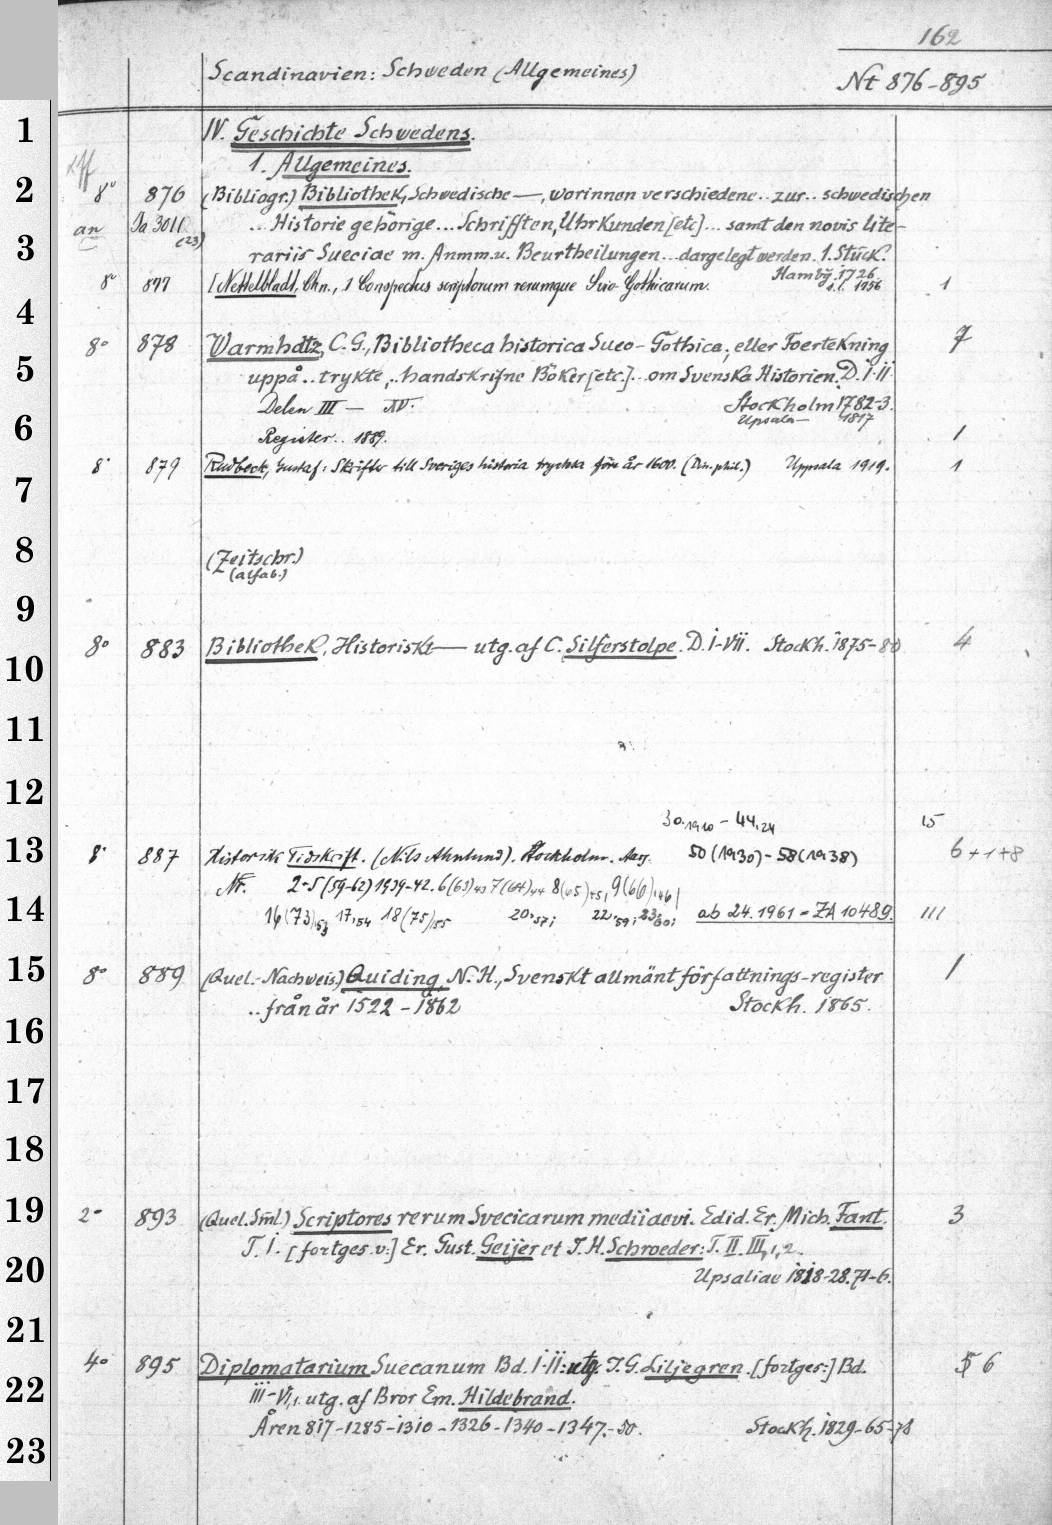 162
Scandinavien: Schweden (Allgemeines)
Nt 876-895
1
IV. Geschichte Schwedens.
1. Allgemeines.
2
8° 876 (Bibliogr.) Bibliothek, Schwedische —, worinnen verschiedene.. zur.. schwedischen
an Ja 3011 (23) .. Historie gehörige... Schrifften, Uhrkunden [etc]... samt den novis lite-
3
rariis Sueciae m. Anmm. u. Beurtheilungen... dargelegt werden. 1. Stück.
Hambg. 1726
8° 877 [Nettelbladt, Chn., 1 Conspectus scriptorum rerumque Svio Gothicarum. s.l. 1756 1
4
8° 878 Warmholtz, C. G., Bibliotheca historica Sueo-Gothica, eller Foertekning 7
5
uppå.. trykte,.. handskrifne Böker [etc.].. om Svenska Historien. D. I-II
Delen III — XV. Stockholm 1782-3.
Upsala — 1817
6
Register.. 1889. 1
8° 879 Rudbeck, Gustaf: Skrifter till Sveriges historia tryckta före år 1600. (Diss. phil.) Uppsala 1919. 1
7
8
(Zeitschr.)
(alfab.)
9
8° 883 Bibliothek, Historiskt — utg. af C. Silferstolpe. D. I-VII. Stockh. 1875-80 4
10
11
12
30.1910 - 44.24 15
13
8° 887 Historisk Tidskrift. (Nils Ahnlund). Stockholm. Aarg. 50 (1930) - 58 (1938) 6+1+8
Nr. 2-5 (59-62) 1939-42. 6 (63) 43 7 (64) 44 8 (65) 45, 9 (66) 46
14
16 (73) 53 17,54 18 (75) 55 20,57; 22,59; 23,60; ab 24.1961 = ZA 10489. III
15
8° 889 (Quel.-Nachweis) Quiding, N. H., Svenskt allmänt författnings-register 1
.. från år 1522 - 1862 Stockh. 1865.
16
17
18
19
2° 893 (Quel. Sml.) Scriptores rerum Svecicarum medii aevi. Edid. Er. Mich. Fant. 3
T. I. [fortges. v:] Er. Gust. Geijer et J. H. Schroeder: T. II. III, 1, 2.
20
Upsaliae 1818-28.71-6.
21
4° 895 Diplomatarium Suecanum Bd. I-II: utg. J. G. Liljegren. [fortges:] Bd. 6
22
III-VI,1. utg. af Bror Em. Hildebrand.
Åren 817-1285-1310-1326-1340-1347.-50. Stockh. 1829-65-78
23